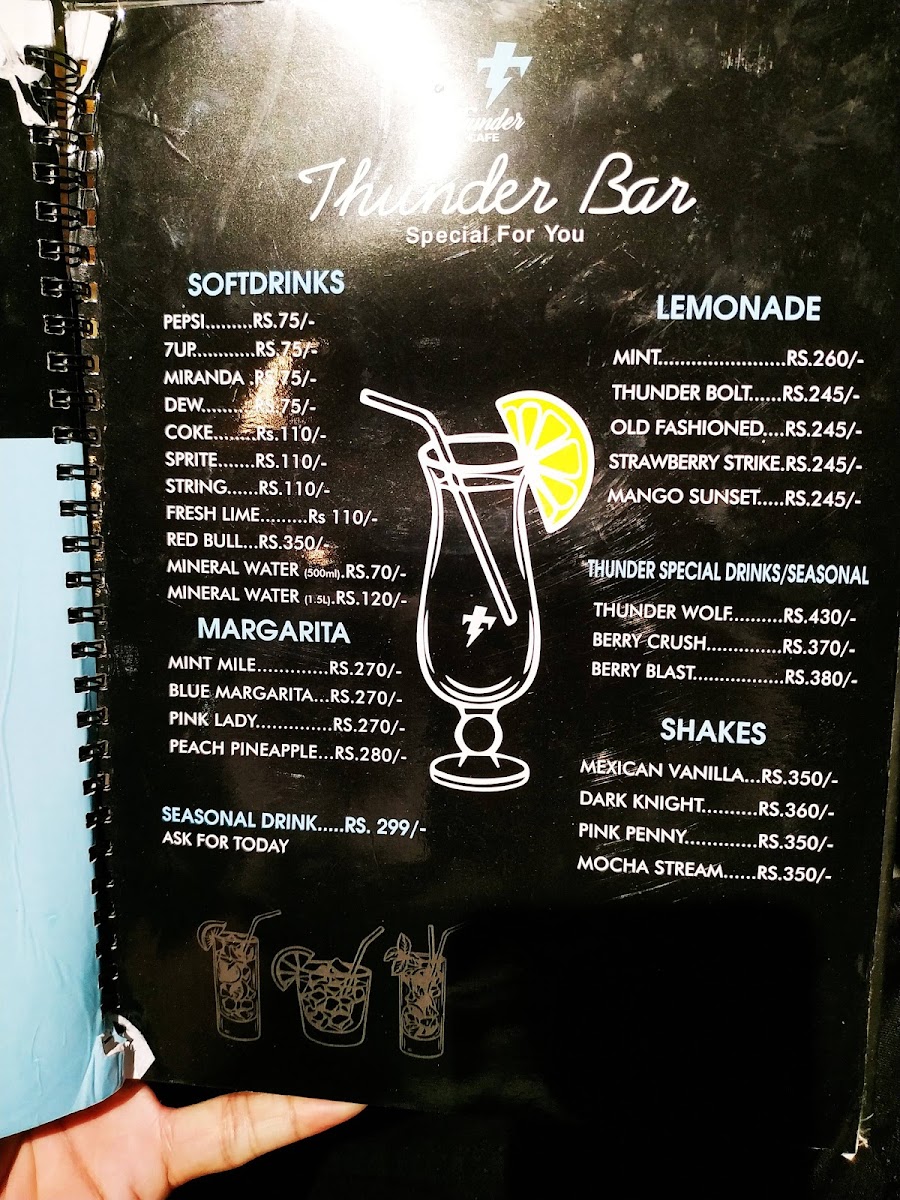 Thunder
CAFE
Thunder Bar
Special For You
SOFTDRINKS
PEPSI.........RS.75/-
7UP............RS.75/-
MIRANDA .RS.75/-
DEW..........RS.75/-
COKE........Rs.110/-
SPRITE.......RS.110/-
STRING......RS.110/-
FRESH LIME.........Rs 110/-
RED BULL...RS.350/-
MINERAL WATER (500ml).RS.70/-
MINERAL WATER (1.5L).RS.120/-
MARGARITA
MINT MILE.............RS.270/-
BLUE MARGARITA...RS.270/-
PINK LADY..............RS.270/-
PEACH PINEAPPLE...RS.280/-
SEASONAL DRINK.....RS. 299/-
ASK FOR TODAY
LEMONADE
MINT.......................RS.260/-
THUNDER BOLT......RS.245/-
OLD FASHIONED....RS.245/-
STRAWBERRY STRIKE.RS.245/-
MANGO SUNSET.....RS.245/-
THUNDER SPECIAL DRINKS/SEASONAL
THUNDER WOLF..........RS.430/-
BERRY CRUSH..............RS.370/-
BERRY BLAST.................RS.380/-
SHAKES
MEXICAN VANILLA...RS.350/-
DARK KNIGHT..........RS.360/-
PINK PENNY.............RS.350/-
MOCHA STREAM......RS.350/-